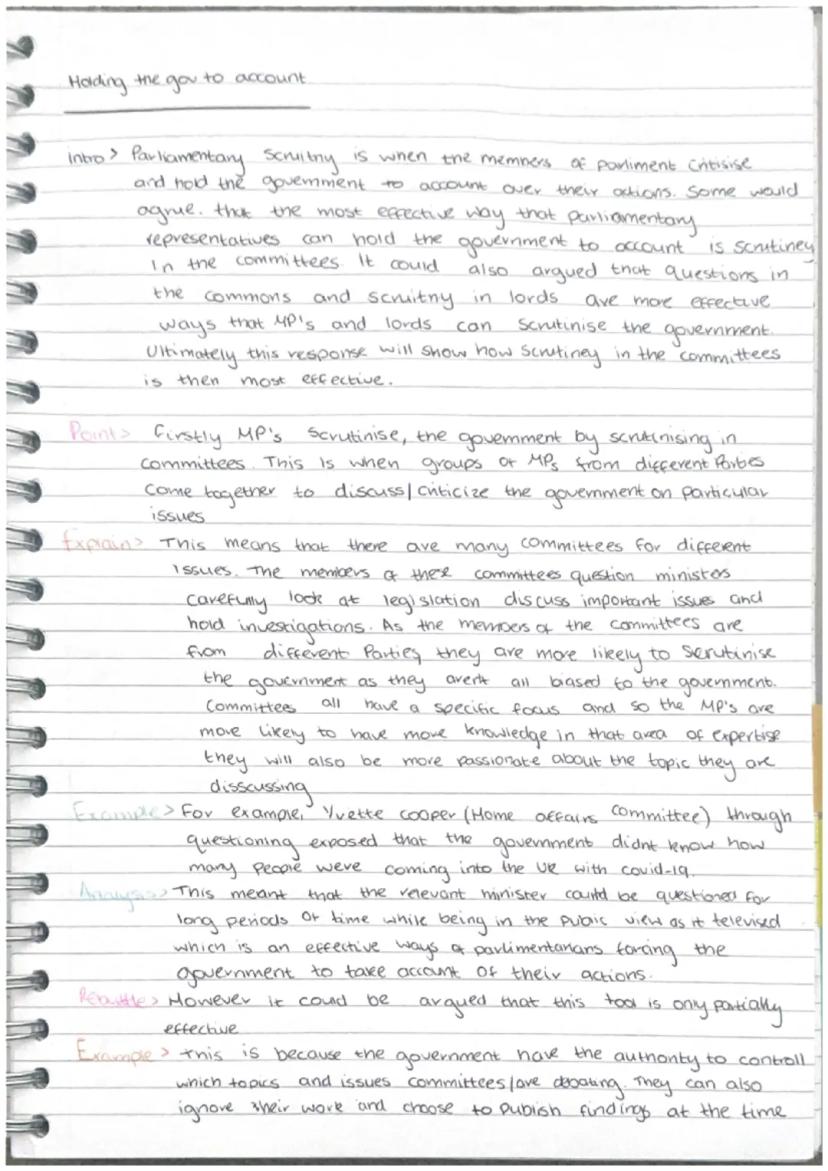 Holding the gov to account
intro > Parliamentary scruitny is when the members of parliment critisise
and hold the government to account over their actions. Some would
agrue. that the most effective way that parliamentary
representatives can hold the government to account is scrutiney
in the committees. It could also argued that questions in
the commons and scruitny in lords are more effective
ways that MP's and lords can scrutinise the government.
Ultimately this response will show how scrutiney in the committees
is then most effective.
Point > Firstly MP's scrutinise, the government by scrutinising in
committees. This is when groups of MPs from different Parties
come together to discuss/criticize the government on particular
issues
Explain > This means that there are many committees for different
issues. The members of these committees question ministers
carefully look at legislation discuss important issues and
hold investigations. As the members of the committees are
from different Parties, they are more likely to scrutinise
the government as they arent all biased to the government.
Committees all have a specific focus and so the MP's are
more likely to have more knowledge in that area of expertise
they will also be more passionate about the topic they are
disscussing
Example > For example, Yvette Cooper (Home affairs committee) through
questioning exposed that the government didnt know how
many people were coming into the UK with covid-19.
Analysis > This meant that the relevant minister could be questioned for
long periods of time while being in the pubic view as it televised
which is an effective ways of parlimentarians forcing the
government to take account of their actions.
Rebuttle > However it could be argued that this tool is only partially
effective
Example > This is because the government have the authority to controll
which topics and issues committees/are debating. They can also
ignore their work and choose to publish findings at the time